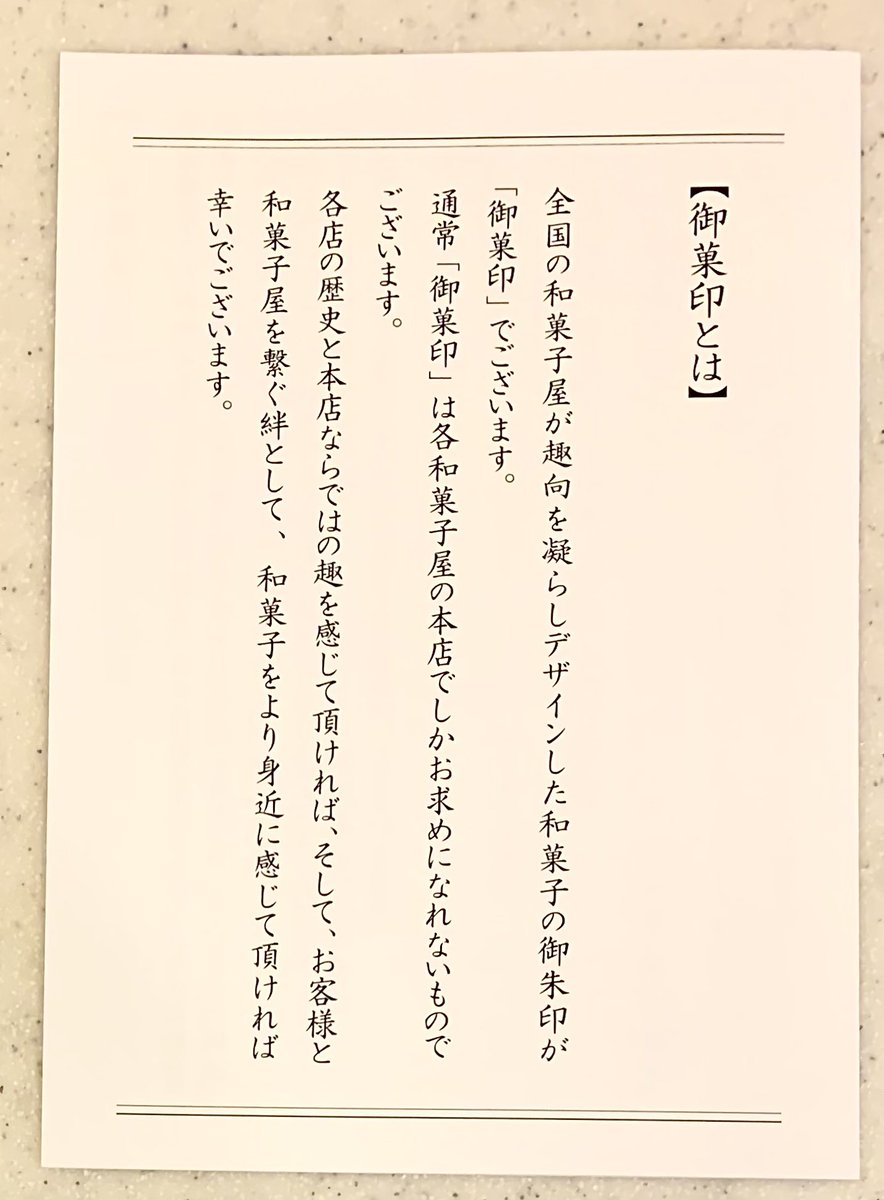 【御菓印とは】
全国の和菓子屋が趣向を凝らしデザインした和菓子の御朱印が
「御菓印」でございます。
通常「御菓印」は各和菓子屋の本店でしかお求めになれないもので
ございます。
各店の歴史と本店ならではの趣を感じて頂ければ、そして、お客様と
和菓子屋を繋ぐ絆として、和菓子をより身近に感じて頂ければ
幸いでございます。